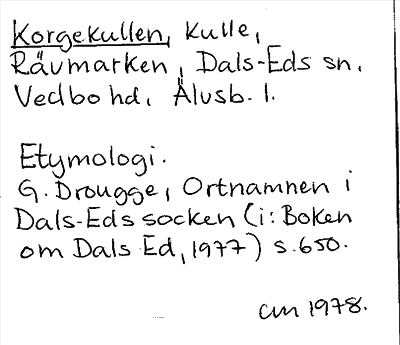 Korgekullen, kulle,
Rävmarken, Dals-Eds sn.
Vedbo hd. Älvsb. l.
Etymologi.
G. Drougge, Ortnamnen i
Dals-Eds socken (i: Boken
om Dals Ed, 1977) s. 650.
am 1978.